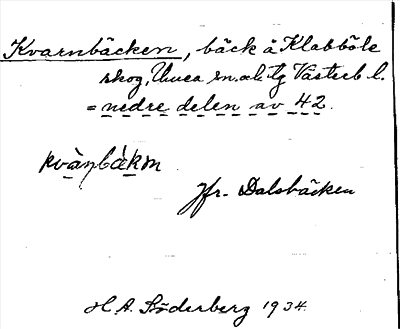 Kvarnbäcken, bäck å Klabböle
skog, Umea sn. o. tg Västerb l.
= nedre delen av 42.
kvànbàkɷn
Jfr. Dalsbäcken
H. A. Söderberg 1934.